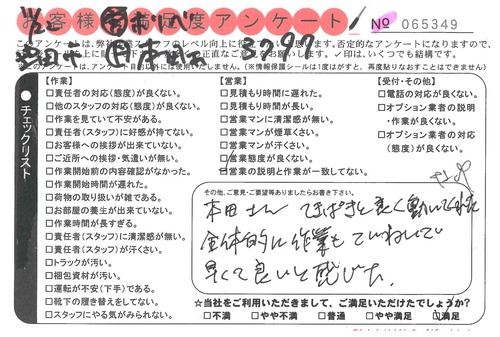 お客様満足度アンケート
№ 065349
このアンケートは、弊社
スタッフのレベル向上に
正直なご意見をお願いします。
【作業】
□責任者の対応(態度)が良くない。
□他のスタッフの対応(態度)が良くない。
□作業を見ていて不安がある。
□責任者(スタッフ)に好感が持てない。
□お客様への挨拶が出来ていない。
□ご近所への挨拶・気遣いが無い。
□作業開始前の内容確認がなかった。
□作業開始時間が遅れた。
□荷物の取り扱いが雑である。
□お部屋の養生が出来ていない。
□作業時間が長すぎる。
□責任者(スタッフ)に清潔感が無い。
□責任者(スタッフ)が汗くさい。
□トラックが汚い。
□梱包資材が汚い。
□運転が不安(下手)である。
□靴下の履き替えをしてない。
□スタッフにやる気がみられない。
【営業】
□見積もり時間に遅れた。
□見積もり時間が長い。
□営業マンに清潔感が無い。
□営業マンが煙草くさい。
□営業マンが汗くさい。
□営業態度が良くない。
□営業の説明と作業が一致してない。
【受付・その他】
□電話の対応が良くない。
□オプション業者の説明
・作業が良くない。
□オプション業者の対応
(態度)が良くない。
●チェックリスト
その他、ご意見・ご要望等ありましたらお書き下さい。
本田さん てきぱきと良く動いてくれた
全体的に作業もていねいで
早くて良いと感じた。
☆当社をご利用いただきまして、ご満足いただけたでしょうか?
□不満 □やや不満 □普通 □やや満足 □満足